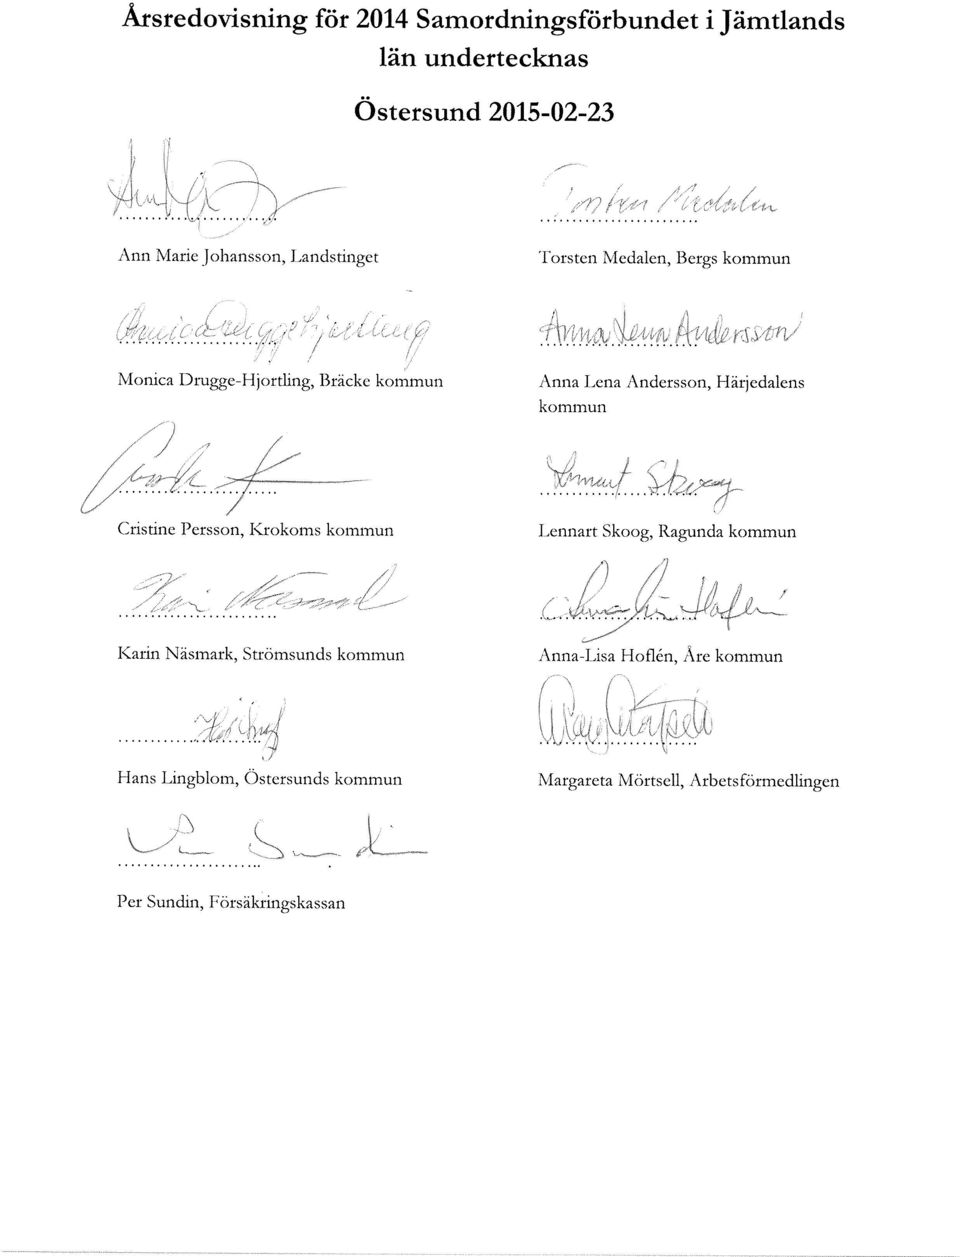 Årsredovisning för 2014 Samordningsförbundet i Jämtlands
län undertecknas
Östersund 2015-02-23
Torsten Medalen
Ann Marie Johansson, Landstinget
Torsten Medalen, Bergs kommun
Anna Lena Andersson
Monica Drugge-Hjortling, Bräcke kommun
Anna Lena Andersson, Härjedalens
kommun
Lennart Skoog
Cristine Persson, Krokoms kommun
Lennart Skoog, Ragunda kommun
Karin Näsmark, Strömsunds kommun
Anna-Lisa Hoflén, Åre kommun
Hans Lingblom, Östersunds kommun
Margareta Mörtsell, Arbetsförmedlingen
Per Sundin, Försäkringskassan